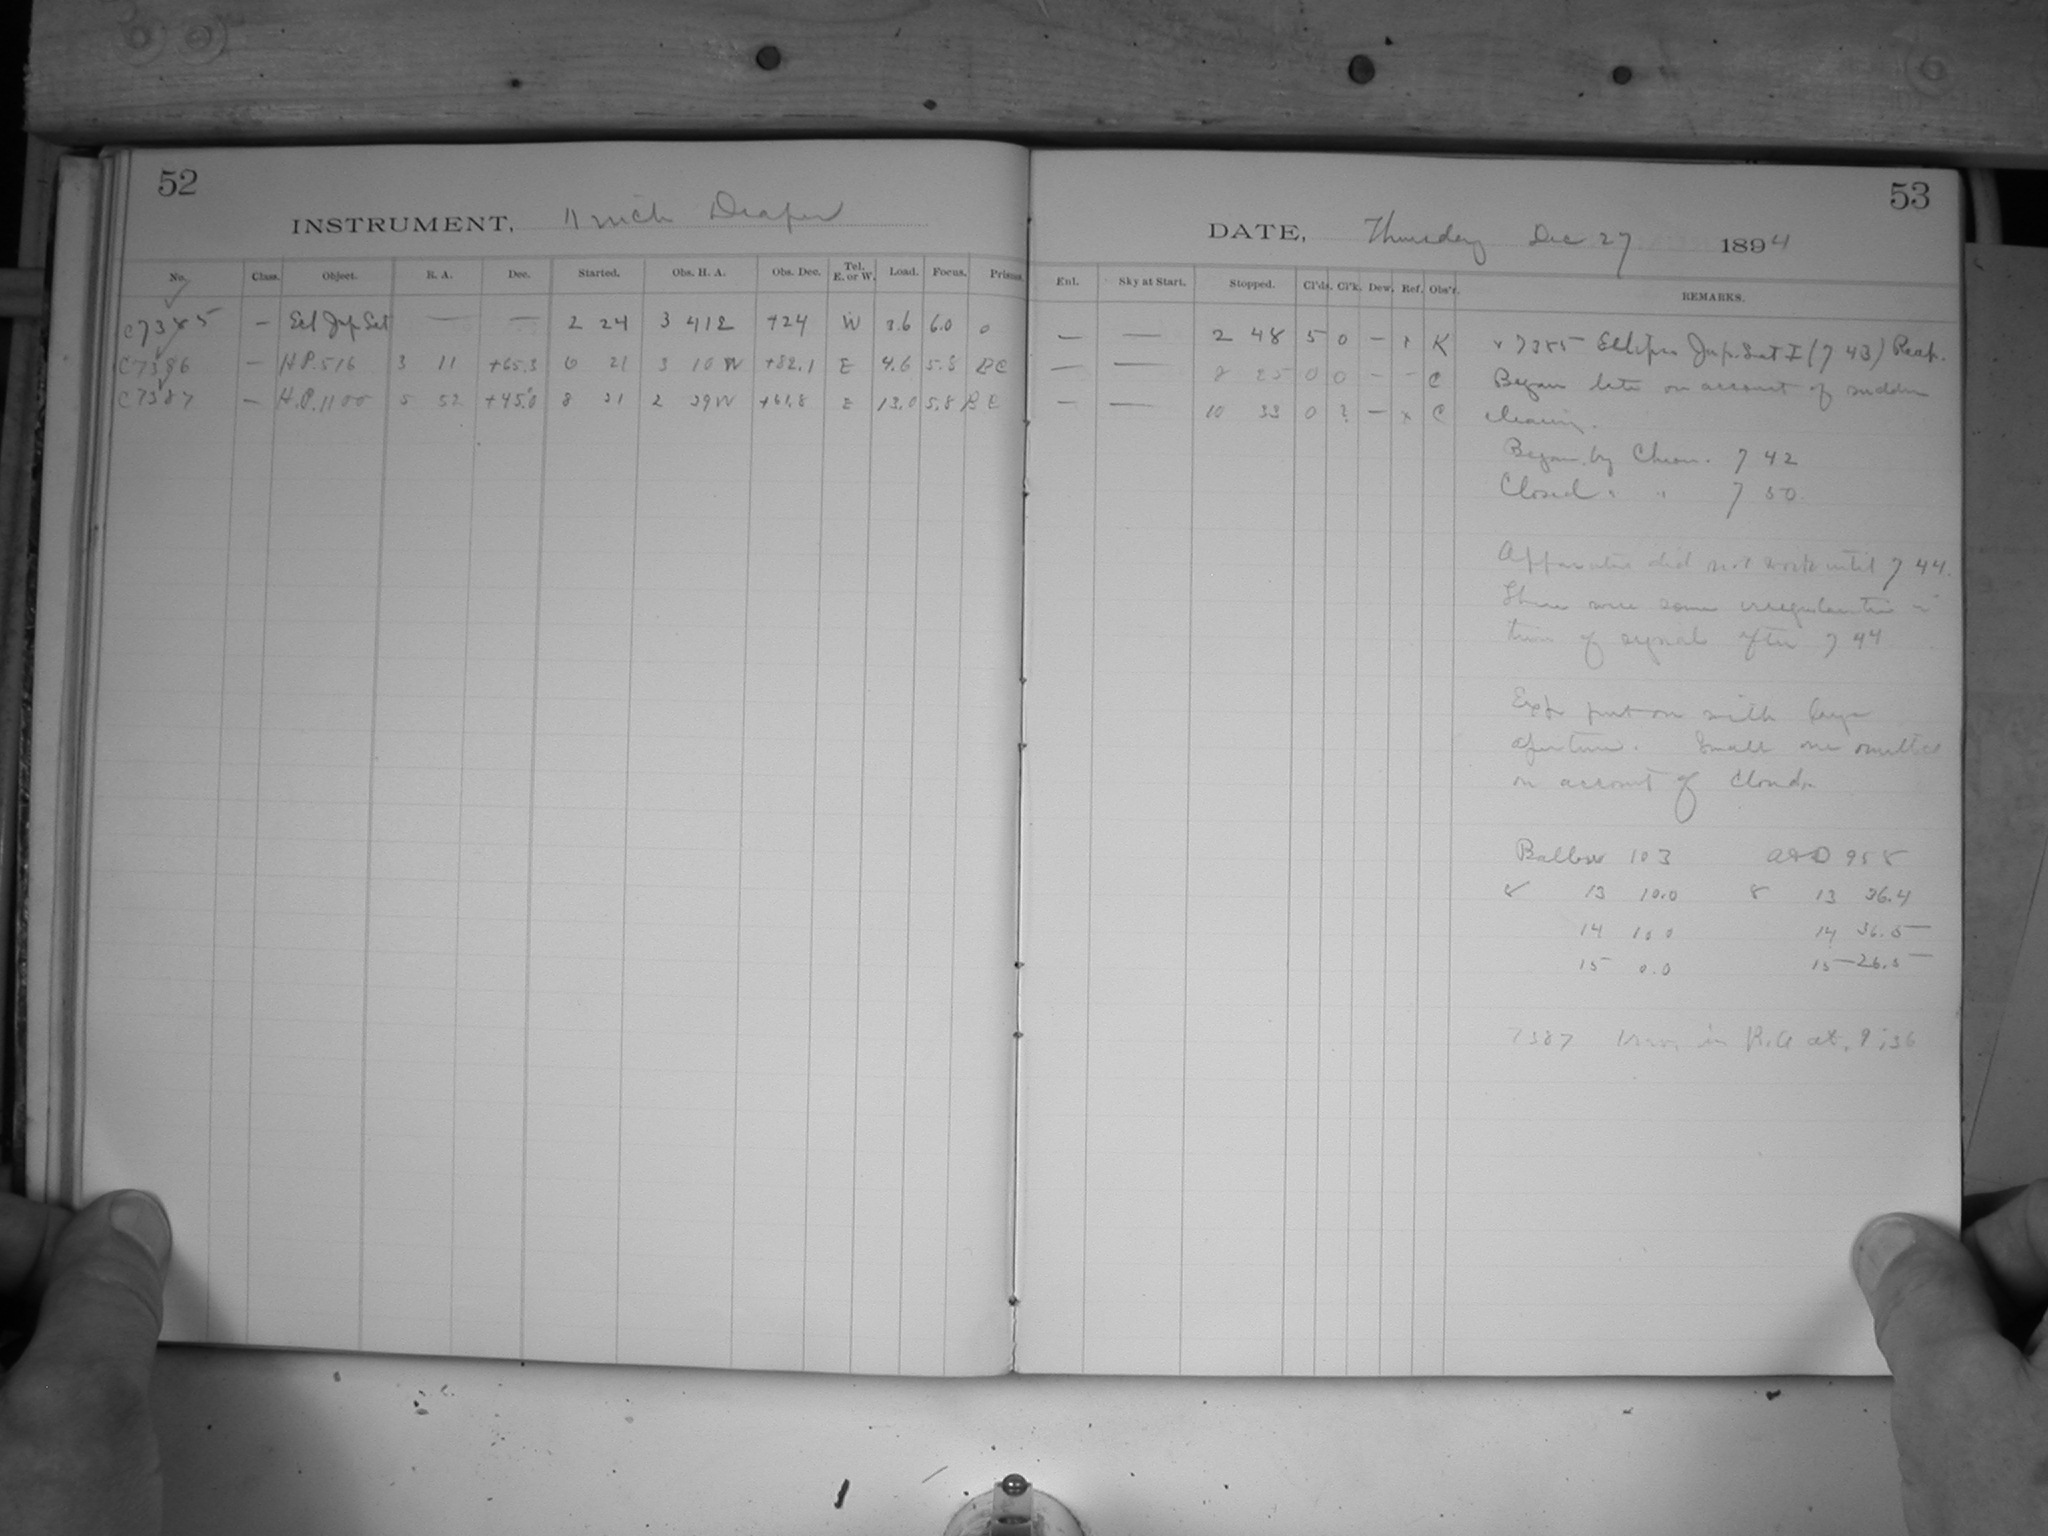 52
INSTRUMENT, 11 inch Draper
No. Class. Object. R. A. Dec. Started. Obs. H. A. Obs. Dec. Tel. E. or W. Load. Focus. Prisms.
C7385 — Ecl Jup Sat — — 2 24 3 41 E +24 W 3.6 6.0 0
C7386 — H.P. 516 3 11 +65.3 6 21 3 10 W +82.1 E 4.6 5.8 BC
C7387 — H.P. 1100 5 52 +45.0 8 31 2 39 W +61.8 E 13.0 5.8 BC
53
DATE, Thursday Dec 27 1894
Enl. Sky at Start. Stopped. Cl'ds. Cl'k. Dew. Ref. Obs'r. REMARKS.
— — 2 48 5 0 — x K x 7385 Eclipse Jup. Sat I (7 43) Reap.
— — 8 25 0 0 — – C Began late on account of sudden
— — 10 33 0 2 — x C clearing.
Began by Chron. 7 42
Closed " " 7 50
Apparatus did not work until 7 44.
There were some irregularities in
time of signals after 7 44
Exp. put on with large
aperture. Small one omitted
on account of clouds.
Ballow 103 958
8 13 10.0 8 13 36.4
14 10.0 14 36.5
15 0.0 15 26.5
7387 Error in R.A. at 9:36